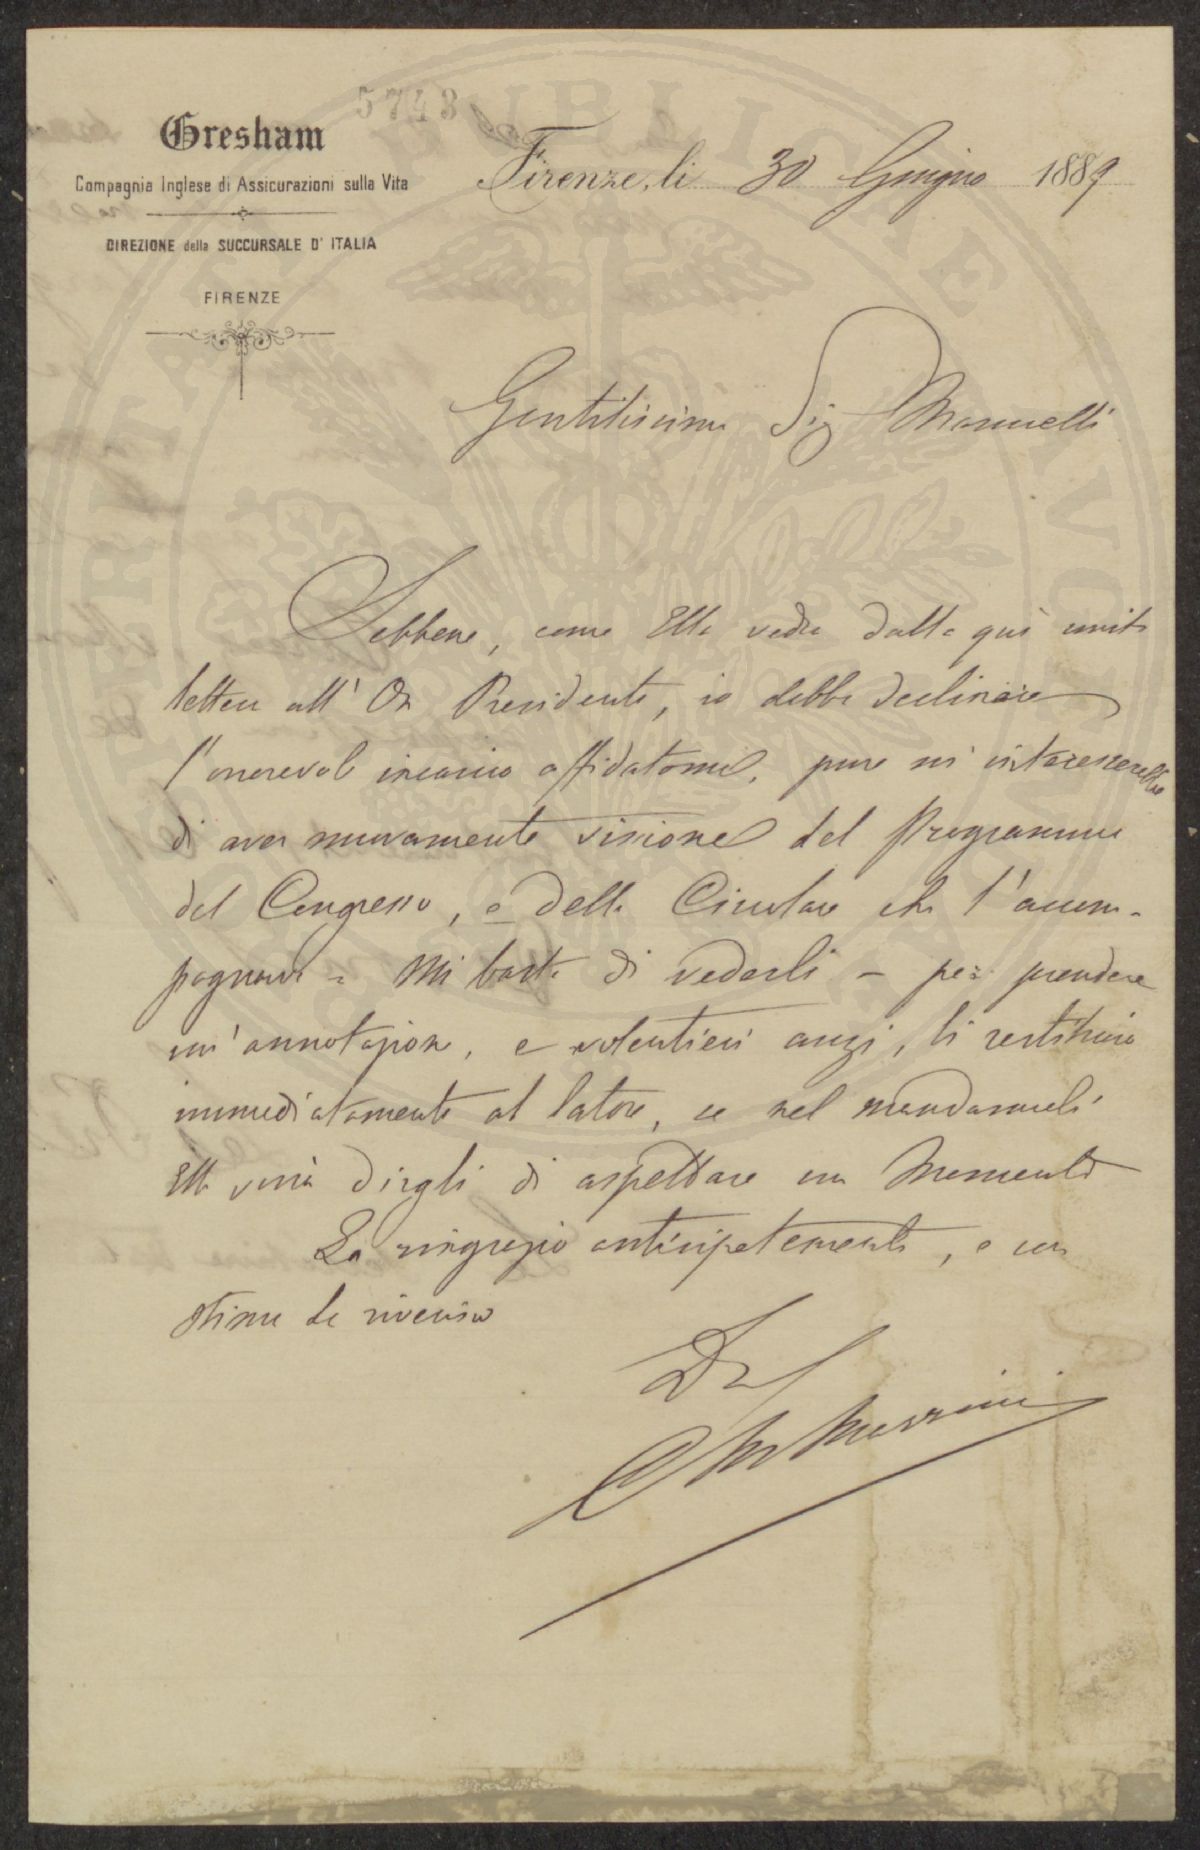 5743
Gresham
Compagnia Inglese di Assicurazioni sulla Vita
DIREZIONE della SUCCURSALE D' ITALIA
FIRENZE
Firenze, li 30 Giugno 1889
Gentilissimo Sig
Sebbene, come Ella vedrà dalla quì unita
lettera all' On Presidente, io debba declinare
l'onorevole incarico affidatomi, pure mi interesserebbe
di aver nuovamente visione del Programma
del Congresso, e della Circolare che l'accom-
pagnava = Mi basta di vederli – per prendere
un'annotazione, e volentieri anzi, li restituirò
immediatamente al latore, se nel mandarmeli
Ella vorrà dirgli di aspettare un Momento
La ringrazio anticipatamente, e con
stima La riverisco